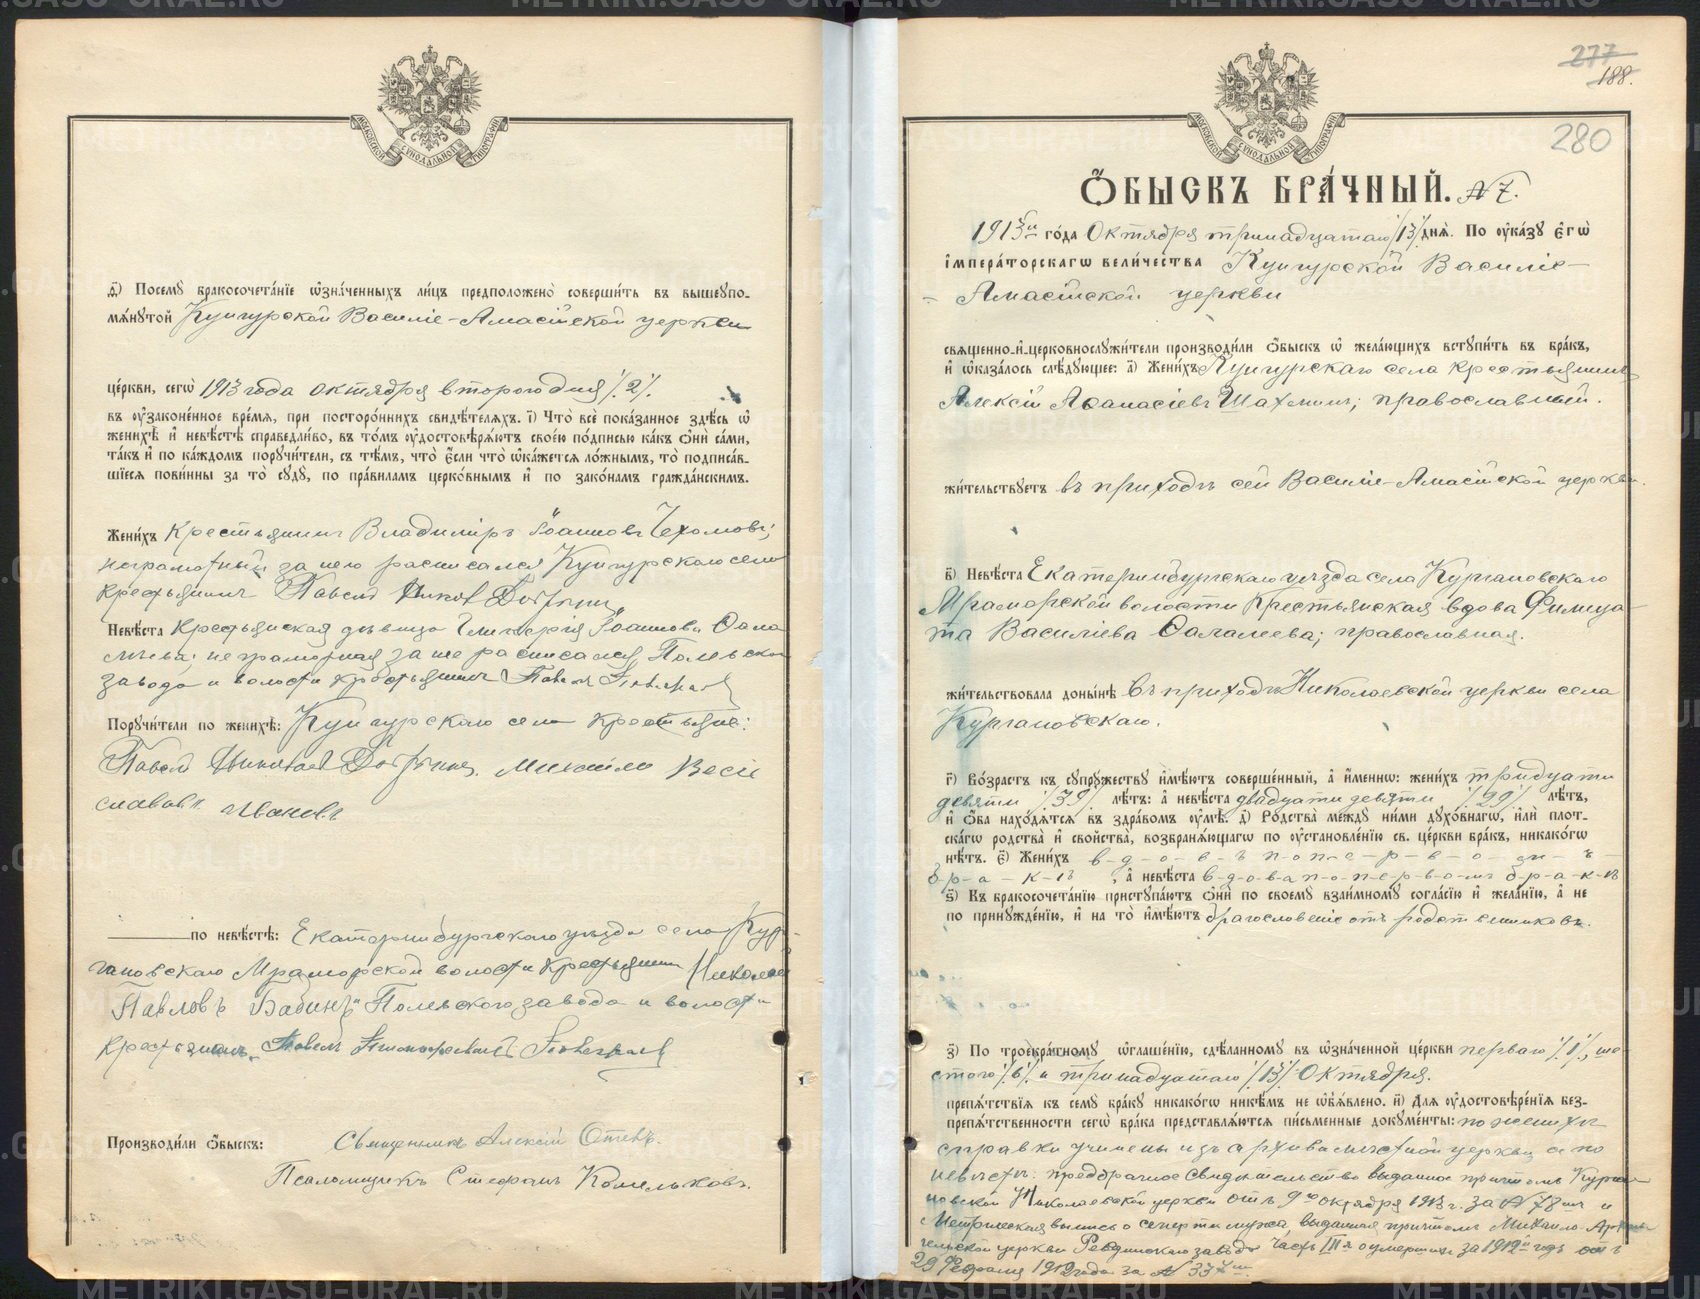 МОСКОВСКОЙ СѴНОДАЛЬНОЙ ТИПОГРАФІИ
ѳ҃) Посемꙋ бракосочета́нїе ѡ҆зна́ченныхъ ли́цъ предположено̀ соверши́ть въ вышеꙋпо-
мѧ́нꙋтой Кунгурской Василіе-Амасійской церкви
це́ркви, сегѡ̀ 1913 года октября второго дня /2/.
въ ᲂу҆зако́ненное вре́мѧ, при посторо́ннихъ свидѣ́телѧхъ. і҃) Что̀ всѐ пока́занное здѣ́сь ѡ҆
женихѣ̀ и҆ невѣ́стѣ справедли́во, въ то́мъ ᲂу҆достовѣрѧ́ютъ свое́ю по́дписью ка́къ ѻ҆нѝ са́ми,
та́къ и҆ по ка́ждомъ порꙋчи́тели, съ тѣ́мъ, что̀ є҆́сли что̀ ѡ҆ка́жетсѧ ло́жнымъ, то̀ подписа́в-
шїесѧ пови́нны за то̀ сꙋдꙋ̀, по пра́виламъ церко́внымъ и҆ по зако́намъ гражда́нскимъ.
Жени́хъ Крестьянинъ Владиміръ Іоанновъ Чехомовъ;
неграмотный за него расписался Кунгурского села
крестьянинъ Павелъ
Невѣ́ста Крестьянская дѣвица Іоаннова
неграмотная за нее расписался Полевского
завода и волости крестьянинъ Павелъ
Порꙋчи́тели по женихѣ̀: Кунгурского села крестьяне:
Павелъ Михаилъ
Ивановъ
по невѣ́стѣ: Екатеринбургскаго уѣзда села Кур-
гановскаго Мраморской волости крестьянинъ Николай
Павловъ Бабинъ Полевского завода и волости
крестьянинъ Павелъ
Производи́ли ѻ҆́быскъ: Священникъ Алексій
Псаломщикъ Стефанъ Комельковъ.
277
188.
280
МОСКОВСКОЙ СѴНОДАЛЬНОЙ ТИПОГРАФІИ
Ѻ҆́БЫСКЪ БРА́ЧНЫЙ. № 7.
1913 го́да Октября тринадцатаго /13/ днѧ̀. По ᲂу҆ка́зꙋ є҆гѡ̀
і҆мпера́торскагѡ вели́чества Кунгурской Василіе-
-Амасійской церкви
свѧще́нно-и҆-церковнослꙋжи́тели производи́ли ѻ҆́быскъ ѡ҆ жела́ющихъ встꙋпи́ть въ бра́къ,
и҆ ѡ҆каза́лось слѣ́дꙋющее: а҃) Жени́хъ Кунгурскаго села крестьянинъ
Алексій Аѳанасіевъ Шахминъ; православный.
жи́тельствꙋетъ въ приходѣ сей Василіе-Амасійской церкви.
в҃) Невѣ́ста Екатеринбургскаго уѣзда села Кургановскаго
Мраморской волости Крестьянская вдова Фимица-
та Васильева православная.
жи́тельствовала доны́нѣ въ приходѣ Николаевской церкви села
Кургановскаго.
г҃) Во́зрастъ къ сꙋпрꙋ́жествꙋ и҆мѣ́ютъ соверше́нный, а҆ и҆́меннѡ: жени́хъ тридцати
девяти /39/ лѣ́тъ: а҆ невѣ́ста двадцати девяти /29/ лѣ́тъ,
и҆ ѻ҆́ба нахо́дѧтсѧ въ здра́вомъ ᲂу҆мѣ̀. д҃) Родства̀ междꙋ̀ ни́ми дꙋхо́внагѡ, и҆лѝ пло́т-
ска́гѡ родства̀ и҆ сво́йства, возбранѧ́ющагѡ по ᲂу҆становле́нїю св. це́ркви бра́къ, никако́гѡ
нѣ́тъ. є҃) Жени́хъ в-д-о-в-ъ п-о п-е-р-в-о-м-ъ
б-р-а-к-ѣ, а҆ невѣ́ста в-д-о-в-а п-о п-е-р-в-о-м-ъ б-р-а-к-ѣ
ѕ҃) Къ бракосочета́нїю пристꙋпа́ютъ ѻ҆нѝ по своемꙋ̀ взаи́мномꙋ согла́сїю и҆ жела́нїю, а҆ не
по принꙋжде́нїю, и҆ на то̀ и҆мѣ́ютъ благословеніе отъ родственниковъ.
з҃) По троекра́тномꙋ ѡ҆глаше́нїю, сдѣ́ланномꙋ въ ѡ҆зна́ченной це́ркви перваго /1/, ше-
стого /6/ и тринадцатаго /13/ Октября.
препѧ́тствїѧ къ семꙋ̀ бра́кꙋ никако́гѡ никѣ́мъ не ѡ҆б̾ѧ́влено. и҃) Длѧ̀ ᲂу҆достовѣре́нїѧ без-
препѧ́тственности сегѡ̀ бра́ка представлѧ́ютсѧ пи́сьменные докꙋме́нты: по женихѣ
справки учинены изъ архива мѣстной церкви, а по
невѣстѣ: предбрачное свидѣтельство выданное причтомъ Курга-
новской Николаевской церкви отъ 9го октября 1913 г. за № 78 и
Метрическая выпись о смерти мужа выданная причтомъ Михаило-Архан-
гельской церкви Ревдинскаго завода часть III о умершихъ за 1912й годъ отъ
29 Февраля 1912 года за № 337